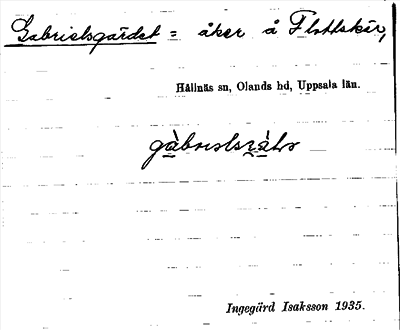 Gabrielsgärdet = åker å Flottskär,
Hållnäs sn, Olands hd, Uppsala län.
Ingegärd Isaksson 1935.